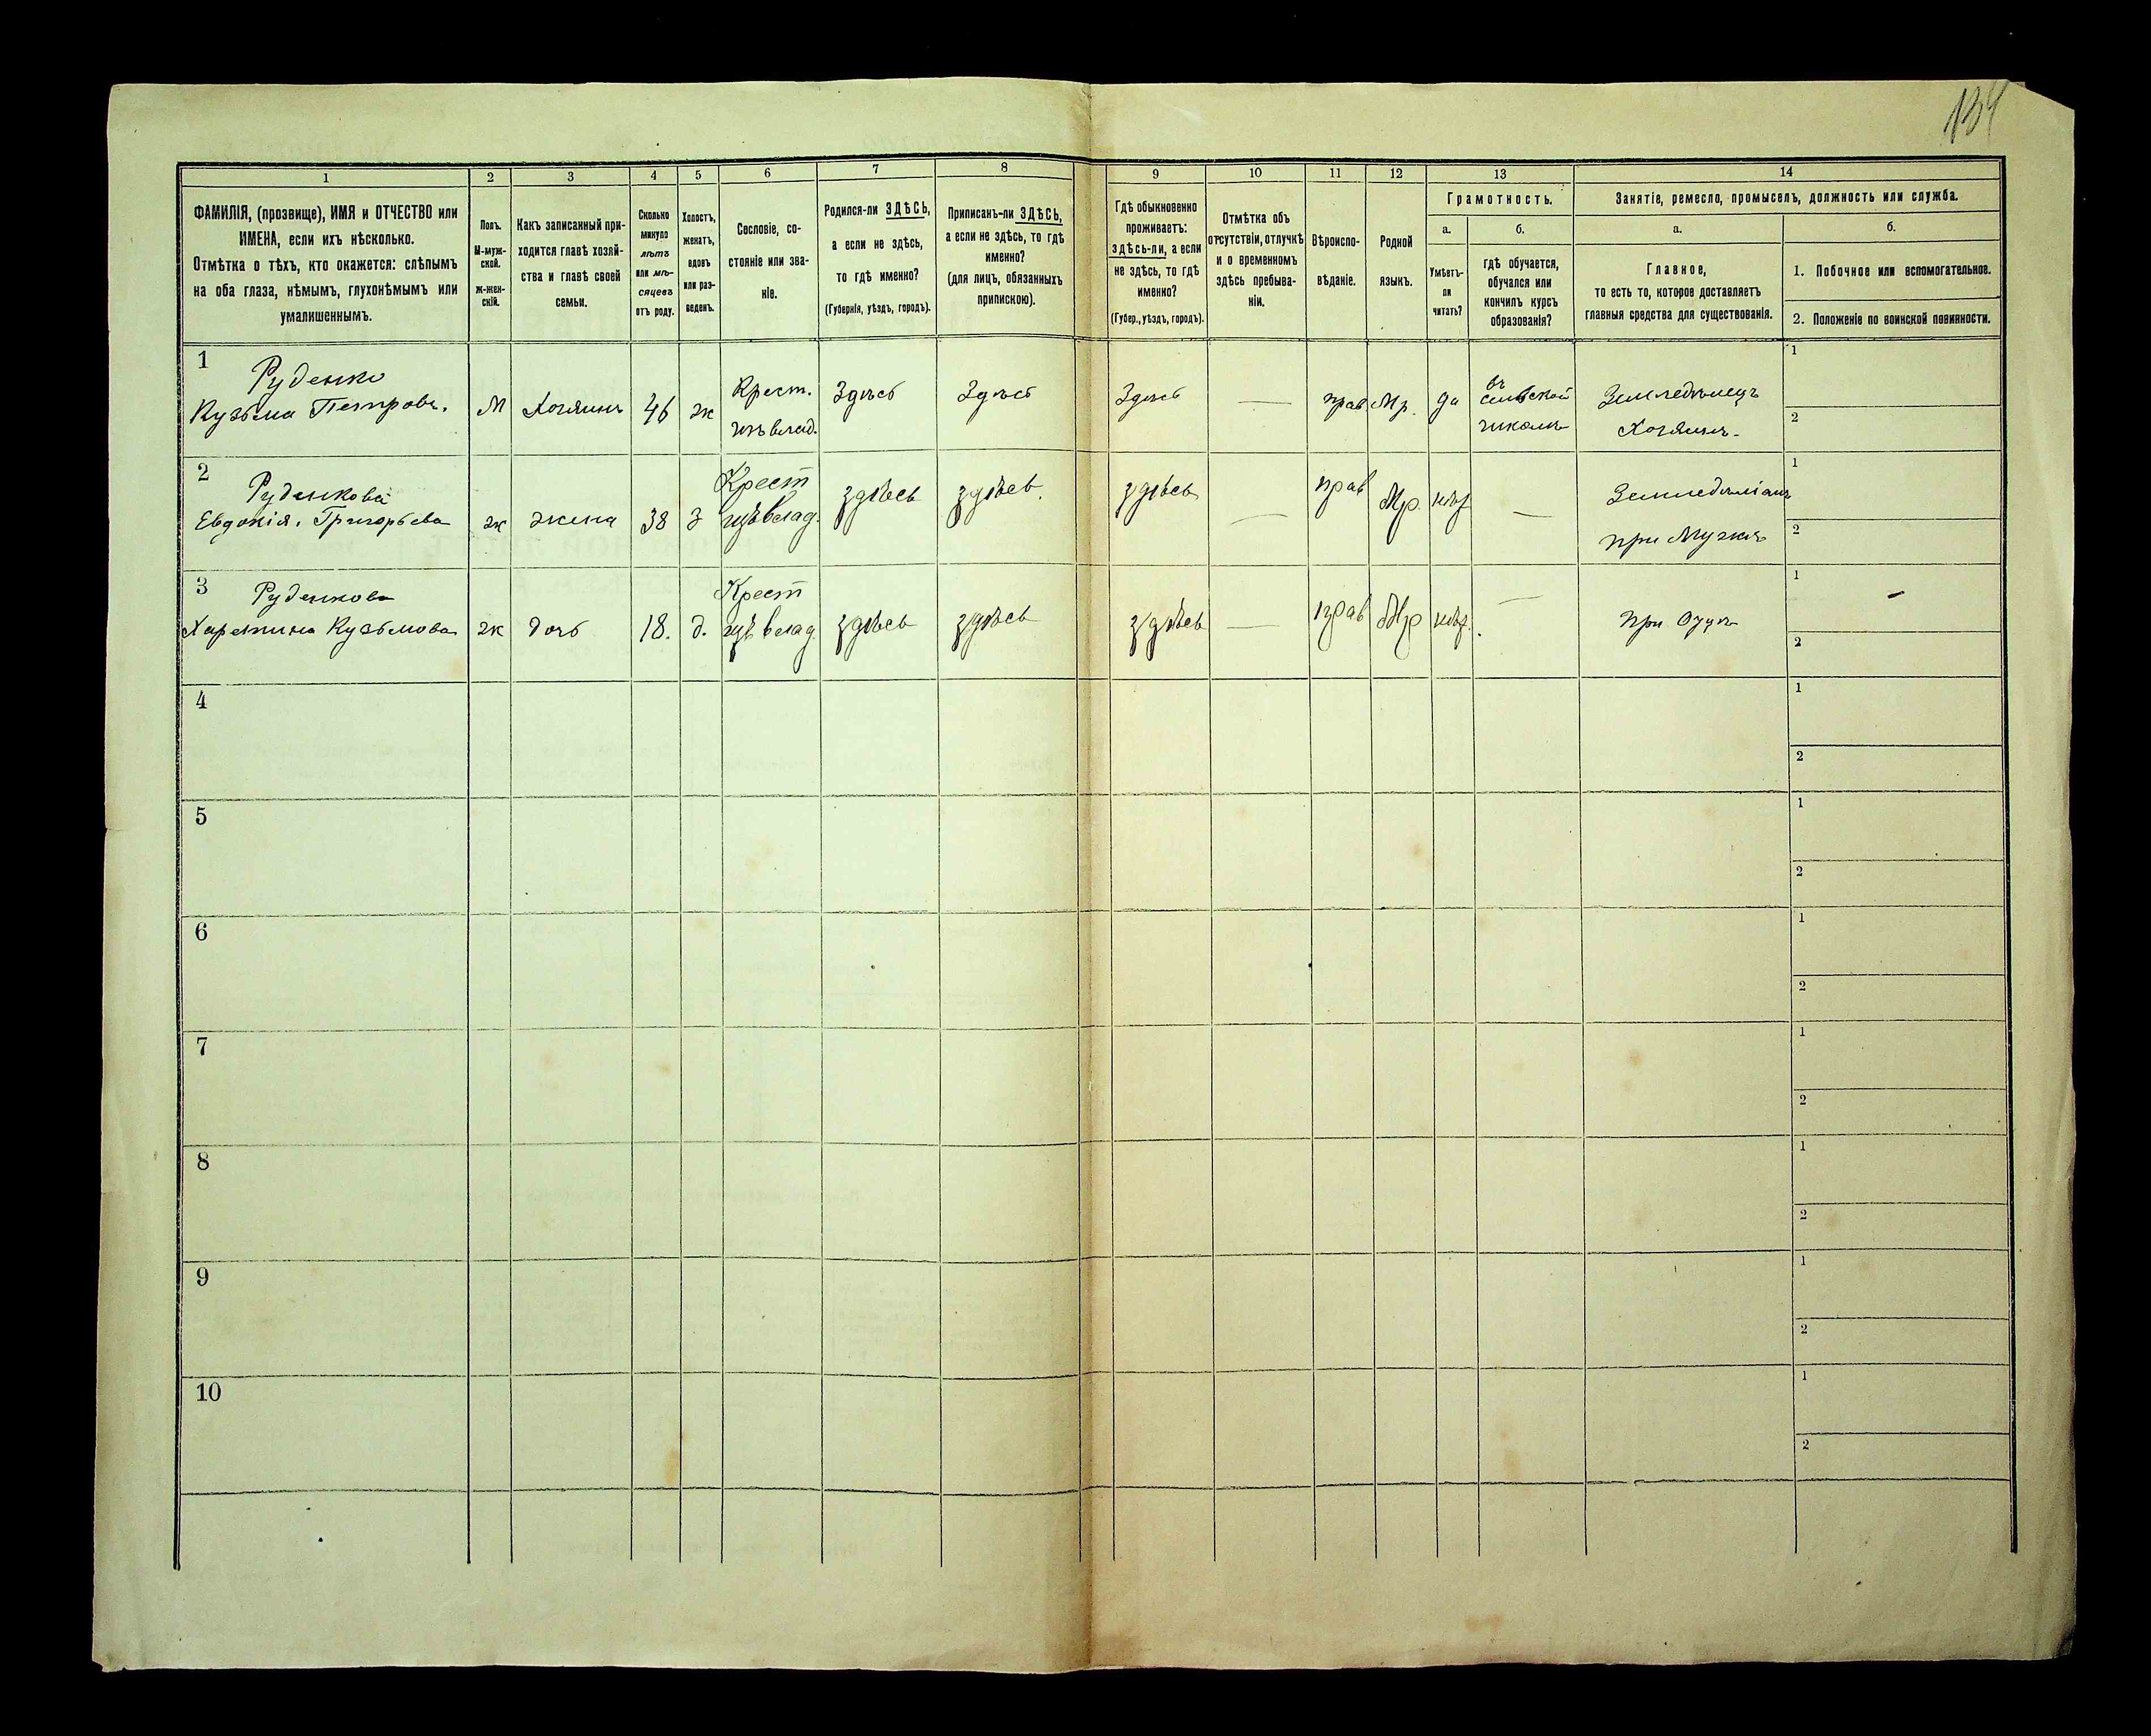 134
1 2 3 4 5 6 7 8 9 10 11 12 13 14
ФАМИЛІЯ, (прозвище), ИМЯ и ОТЧЕСТВО или
ИМЕНА, если ихъ нѣсколько.
Отмѣтка о тѣхъ, кто окажется: слѣпымъ
на оба глаза, нѣмымъ, глухонѣмымъ или
умалишеннымъ.
Полъ.
М-муж-
ской.
Ж-жен-
скій.
Какъ записанный при-
ходится главѣ хозяй-
ства и главѣ своей
семьи.
Сколько
минуло
лѣтъ
или мѣ-
сяцевъ
отъ роду.
Холостъ,
женатъ,
вдовъ
или раз-
веденъ.
Сословіе, со-
стояніе или зва-
ніе.
Родился-ли ЗДѢСЬ,
а если не здѣсь,
то гдѣ именно?
(Губернія, уѣздъ, городъ).
Приписанъ-ли ЗДѢСЬ,
а если не здѣсь, то гдѣ
именно?
(для лицъ, обязанныхъ
припискою).
Гдѣ обыкновенно
проживаетъ:
здѣсь-ли, а если
не здѣсь, то гдѣ
именно?
(Губер., уѣздъ, городъ).
Отмѣтка объ
отсутствіи, отлучкѣ
и о временномъ
здѣсь пребыва-
ніи.
Вѣроиспо-
вѣданіе.
Родной
языкъ.
Грамотность.
а.
Умѣетъ-
ли
читать?
б.
гдѣ обучается,
обучался или
кончилъ курсъ
образованія?
Занятіе, ремесло, промыселъ, должность или служба.
а.
Главное,
то есть то, которое доставляетъ
главныя средства для существованія.
б.
1. Побочное или вспомогательное.
2. Положеніе по воинской повинности.
1
Руденко
Кузьма Петровъ.
М
Хозяинъ
46
ж
Крест.
изъ влад.
Здѣсь
Здѣсь
Здѣсь
—
прав
Мр.
да
въ
сельской
школѣ
Земледѣлецъ
Хозяинъ-
1
2
2
Руденкова
Евдокія. Григорьева
ж
жена
38
з
Крест
изъ влад.
здѣсь
здѣсь.
здѣсь
—
прав
Мр.
нѣт
—
при Мужѣ
1
2
3
Руденкова
Харетина Кузьмова
ж
дочь
18.
д.
Крест
изъ влад.
здѣсь
здѣсь
здѣсь
—
прав
Мр
нѣт.
—
при Отцѣ
1
-
2
4
1
2
5
1
2
6
1
2
7
1
2
8
1
2
9
1
2
10
1
2